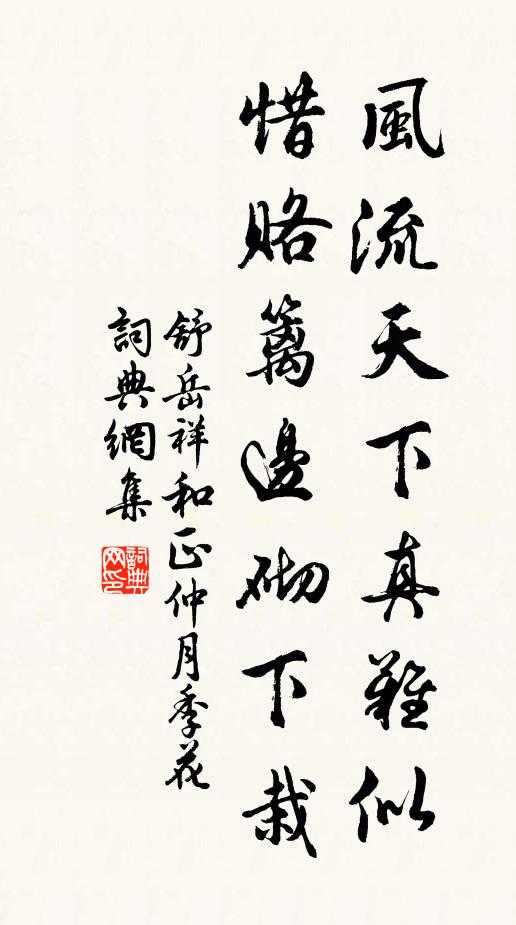 風流天下真難似
惜賂篱邊砌下栽
舒岳祥和正仲月季花
詞典網集
詞典
网印